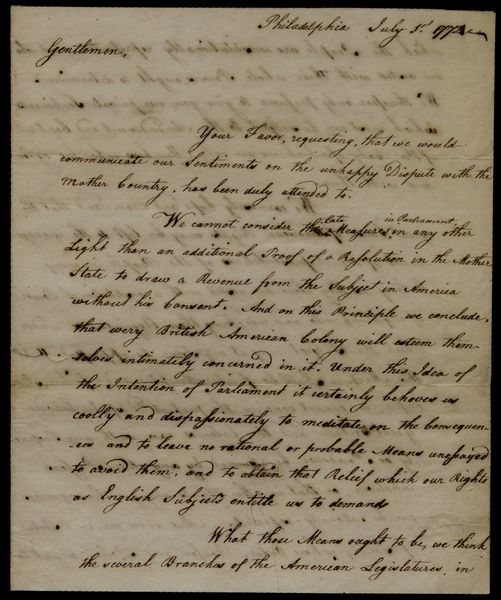 Philadelphia July 1st 1774
Gentlemen,
Your Favor, requesting, that we would
communicate our Sentiments on the unhappy Dispute with the
Mother Country, has been duly attended to.
We cannot consider the late Measures in Parliament in any other
Light than an additional Proof of a Resolution in the Mother
State to draw a Revenue from the Subject in America
without his Consent. And on this Principle we conclude,
that every British American Colony will esteem them-
selves intimately concerned in it. Under this Idea of
the Intention of Parliament it certainly behoves us
coolly and dispassionately to meditate on the Consequen-
-ces and to leave no rational or probable Means unessayed
to avoid them, and to obtain that Relief which our Rights
as English Subjects entitle us to demand
What those Means ought to be, we think
the several Branches of the American Legislatures, in